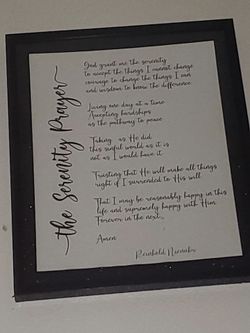 the Serenity Prayer
God grant me the serenity
to accept the things I cannot change
courage to change the things I can
and wisdom to know the difference.
Living one day at a time
Accepting hardships
as the pathway to peace
Taking as He did
this sinful world as it is
not as I would have it
Trusting that He will make all things
right if I surrendered to His will
That I may be reasonably happy in this
life and supremely happy with Him
Forever in the next...
Amen
Reinhold